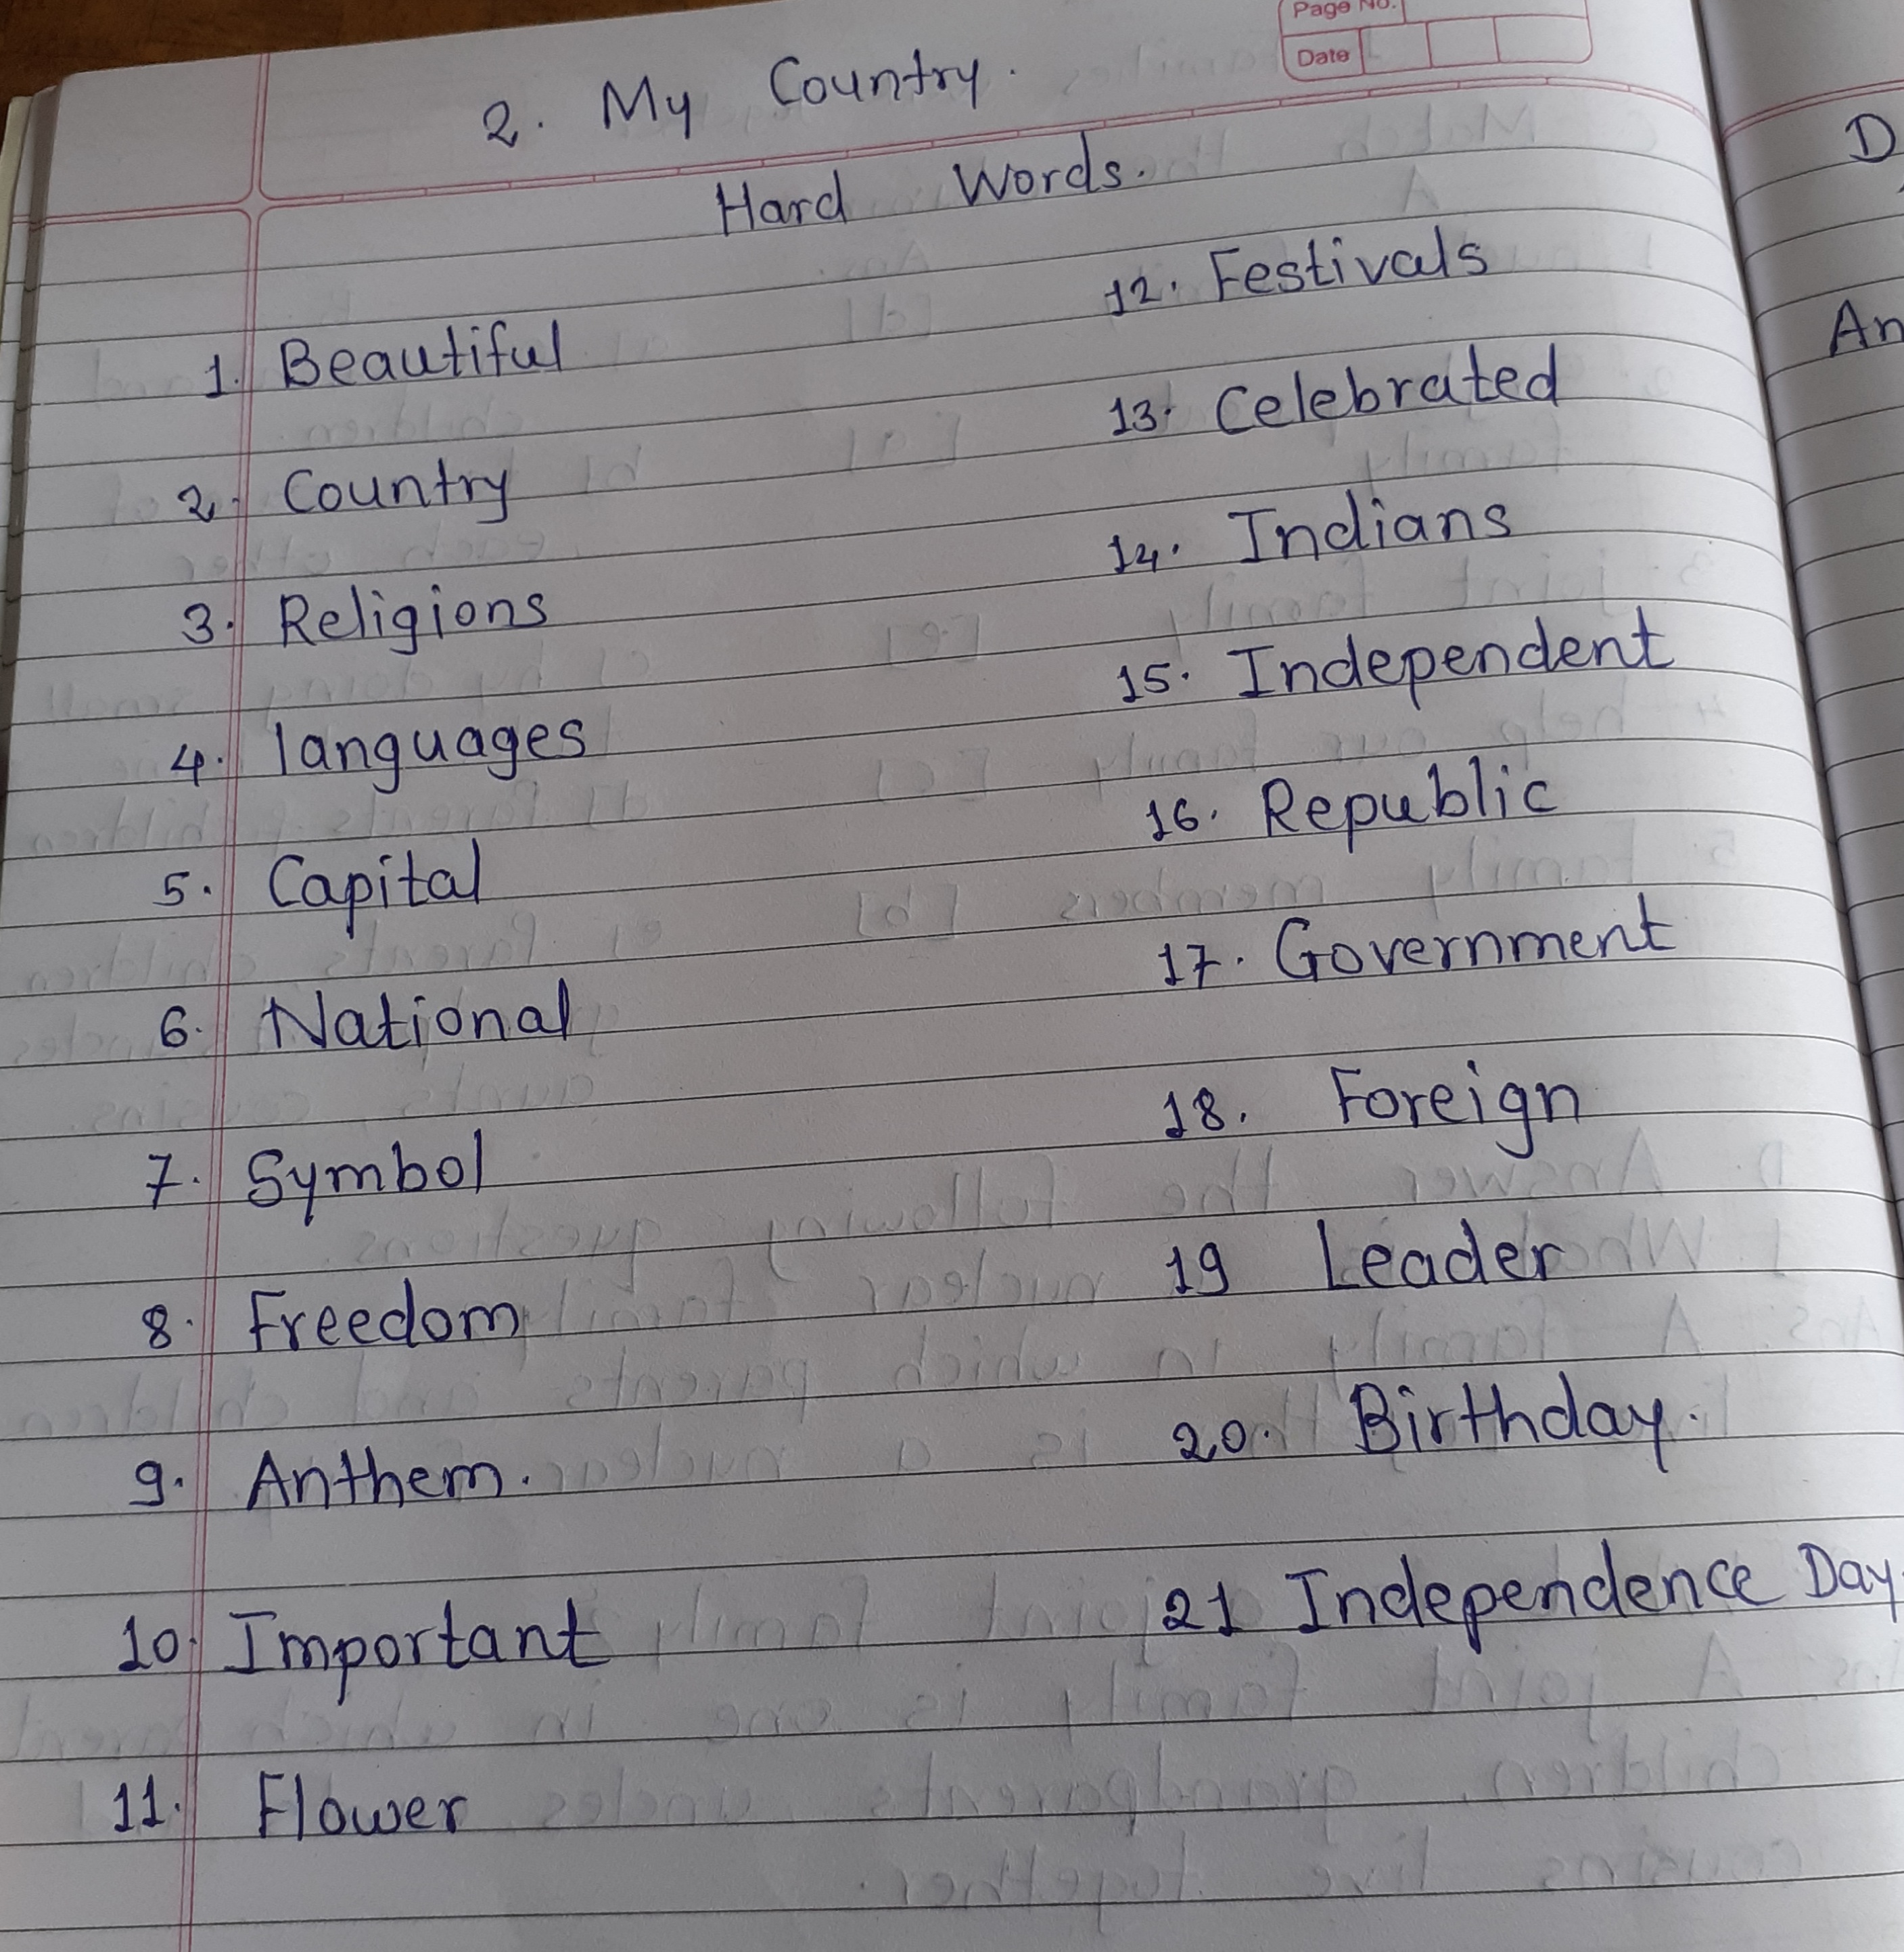 Page No.
Date
2. My Country.
Hard Words.
1. Beautiful
2. Country
3. Religions
4. languages
5. Capital
6. National
7. Symbol
8. Freedom
9. Anthem.
10. Important
11. Flower
12. Festivals
13. Celebrated
14. Indians
15. Independent
16. Republic
17. Government
18. Foreign
19 Leader
20. Birthday.
21 Independence Day.
D
An